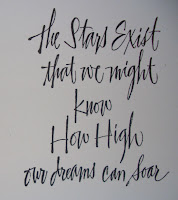 The Stars Exist
that we might
know
How High
our dreams can soar